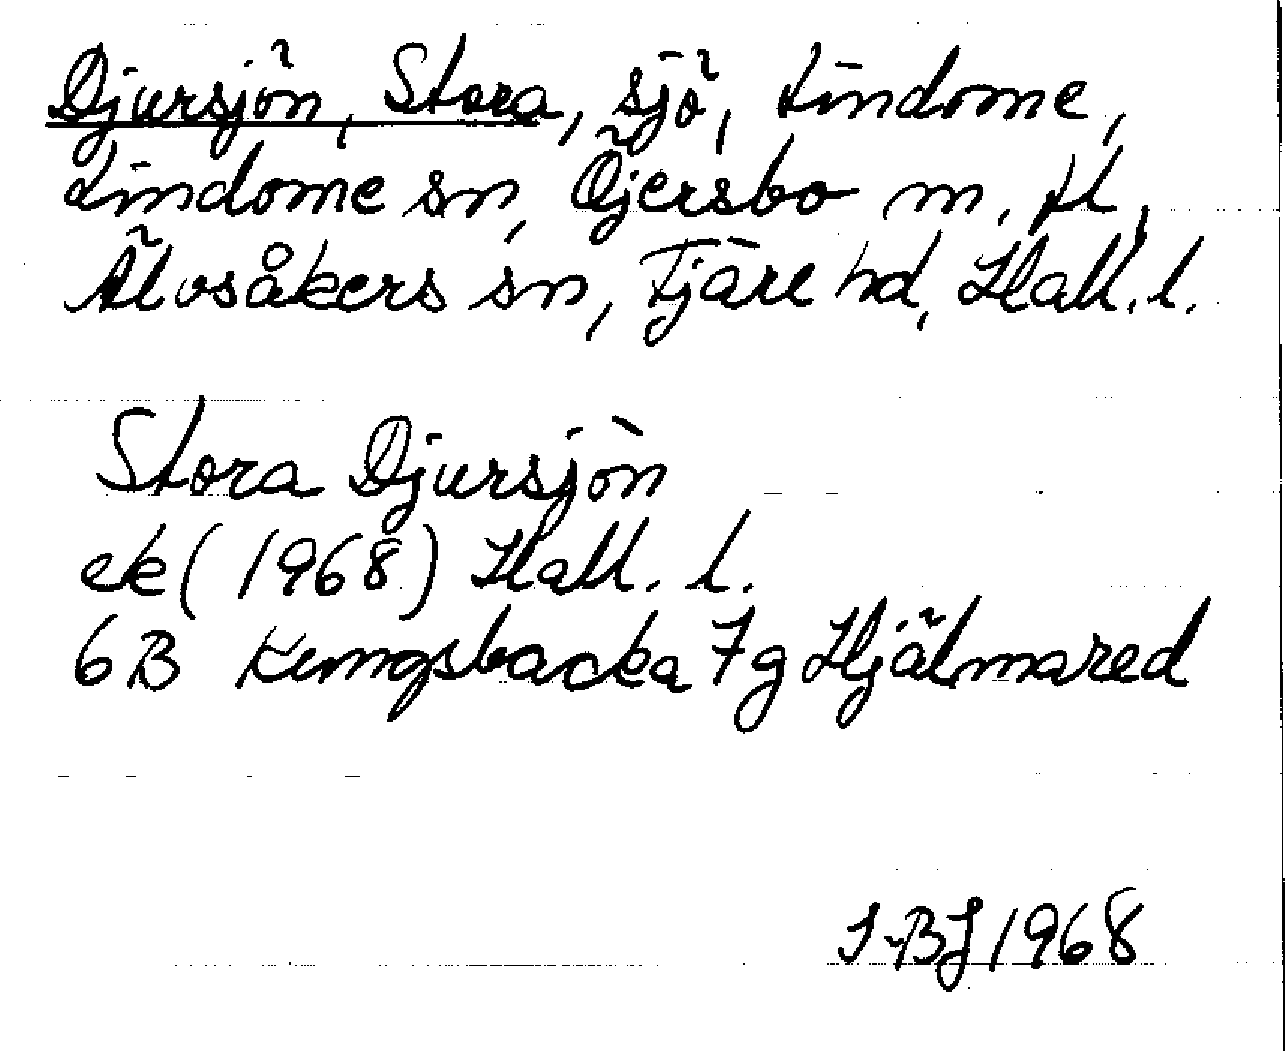 Djursjön, Stora, sjö, Lindome,
Lindome sn, Öjersbo m. fl,
Älvsåkers sn, Fjäre hd, Hall. l.
Stora Djursjön
ek (1968) Hall. l.
6B Kungsbacka 7g Hjälmared
I-BJ 1968